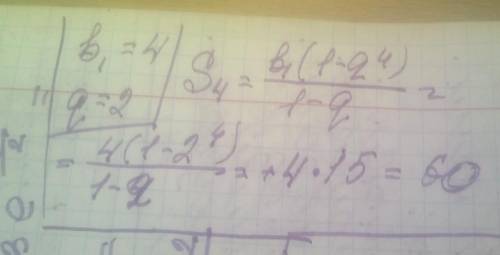 b₁ = 4
q = 2
S₄ = b₁(1-q⁴) / 1-q =
= 4(1-2⁴) / 1-2 = +4·15 = 60